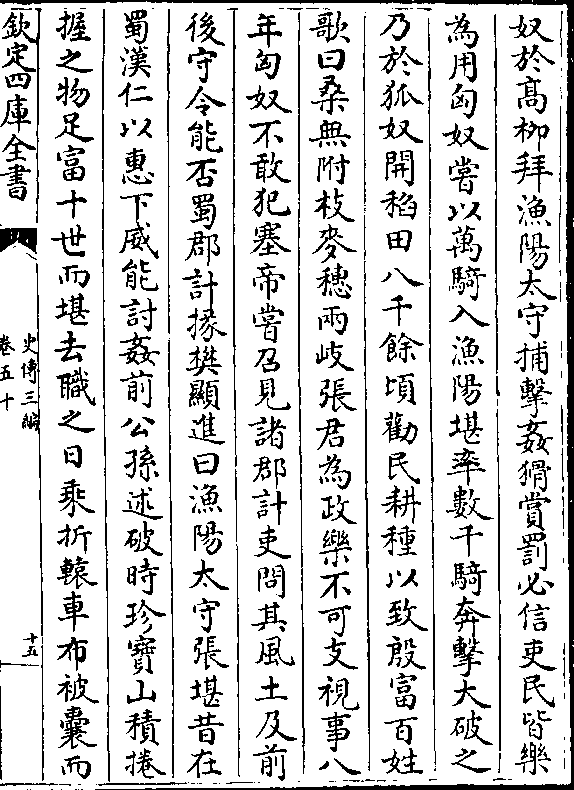 奴於髙柳拜漁陽太守捕擊姦猾賞罰必信吏民皆樂
為用匈奴嘗以萬騎入漁陽堪率數千騎奔擊大破之
乃於狐奴開稻田八千餘頃勸民耕種以致殷富百姓
歌曰桑無附枝麥穗兩岐張君為政樂不可支視事八
年匈奴不敢犯塞帝嘗召見諸郡計吏問其風土及前
後守令能否蜀郡計掾樊顯進曰漁陽太守張堪昔在
蜀漢仁以惠下威能討姦前公孫述破時珍寶山積捲
握之物足富十世而堪去職之日乘折轅車布被囊而
欽定四庫全書
史傳三編
卷五十
十五